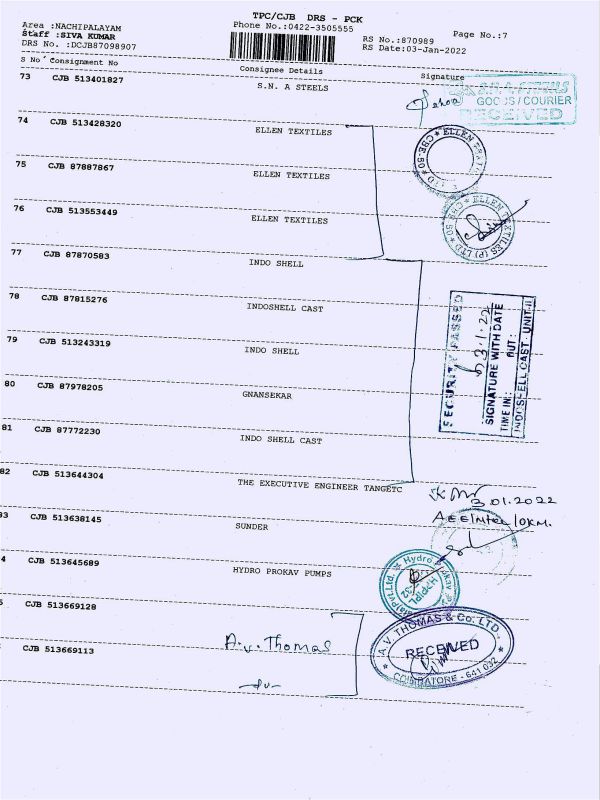 TPC/CJB DRS - PCK
Area :NACHIPALAYAM Phone No.:0422-3505555 Page No.:7
Staff :SIVA KUMAR RS No.:870989
DRS No. :DCJB87098907 RS Date:03-Jan-2022
S No Consignment No Consignee Details Signature
73 CJB 513401827 S.N. A STEELS
GOODS/COURIER
RECEIVED
74 CJB 513428320 ELLEN TEXTILES
75 CJB 87887867 ELLEN TEXTILES
76 CJB 513553449 ELLEN TEXTILES
ELLEN TEXTILES (P) LTD * CBE-50 *
77 CJB 87870583 INDO SHELL
78 CJB 87815276 INDOSHELL CAST
79 CJB 513243319 INDO SHELL
80 CJB 87978205 GNANSEKAR
81 CJB 87772230 INDO SHELL CAST
SECURITY PASSED
3.1.22
SIGNATURE WITH DATE
TIME IN: OUT:
INDOSHELL CAST UNIT-II
82 CJB 513644304 THE EXECUTIVE ENGINEER TANGETC
3.01.2022
83 CJB 513638145 SUNDER
4 CJB 513645689 HYDRO PROKAV PUMPS
Hydro Prokav
HPPIPL
CJB 513669128
A.V. Thomas
CJB 513669113
A.V. THOMAS & CO. LTD.,
RECEIVED
COIMBATORE - 641 032